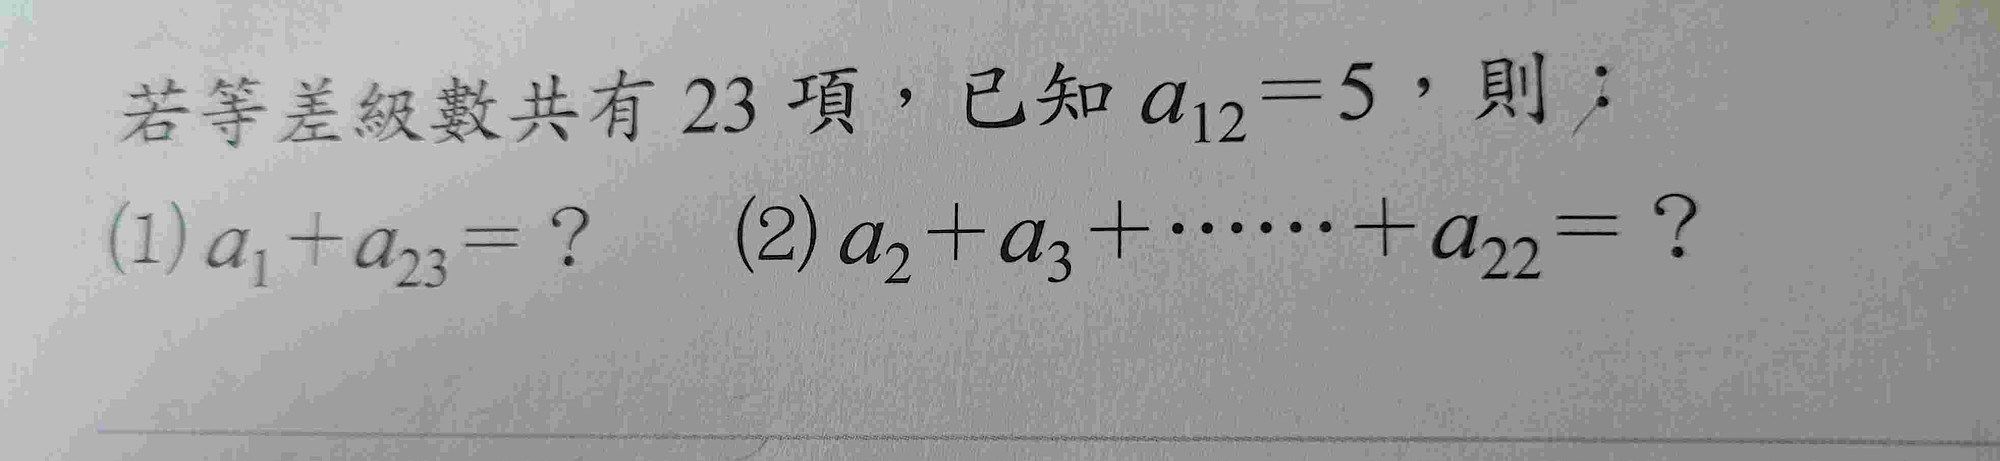 若等差級數共有 23 項，已知 a₁₂=5，則；
(1) a₁+a₂₃=？ (2) a₂+a₃+……+a₂₂=？